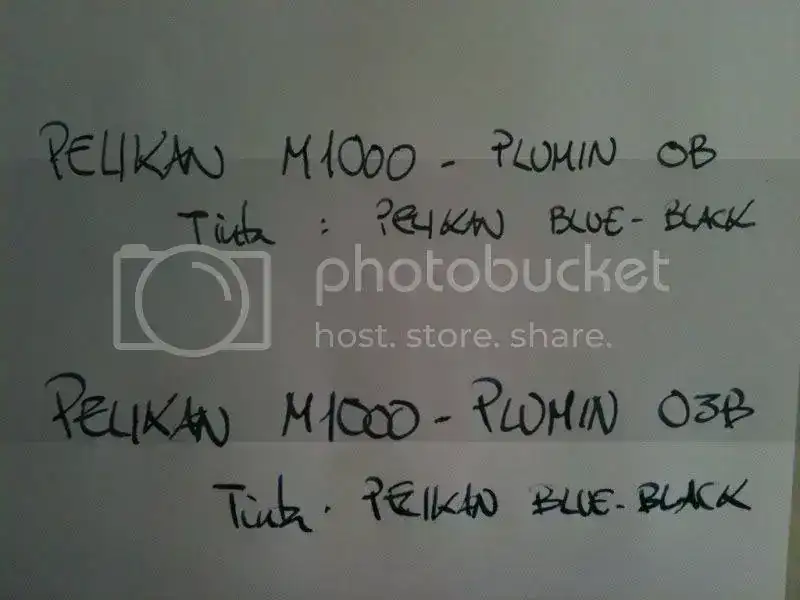 PELIKAN M1000 - PLUMIN OB
Tinta : PELIKAN BLUE-BLACK
photobucket
host. store. share.
PELIKAN M1000 - PLUMIN O3B
Tinta . PELIKAN BLUE-BLACK